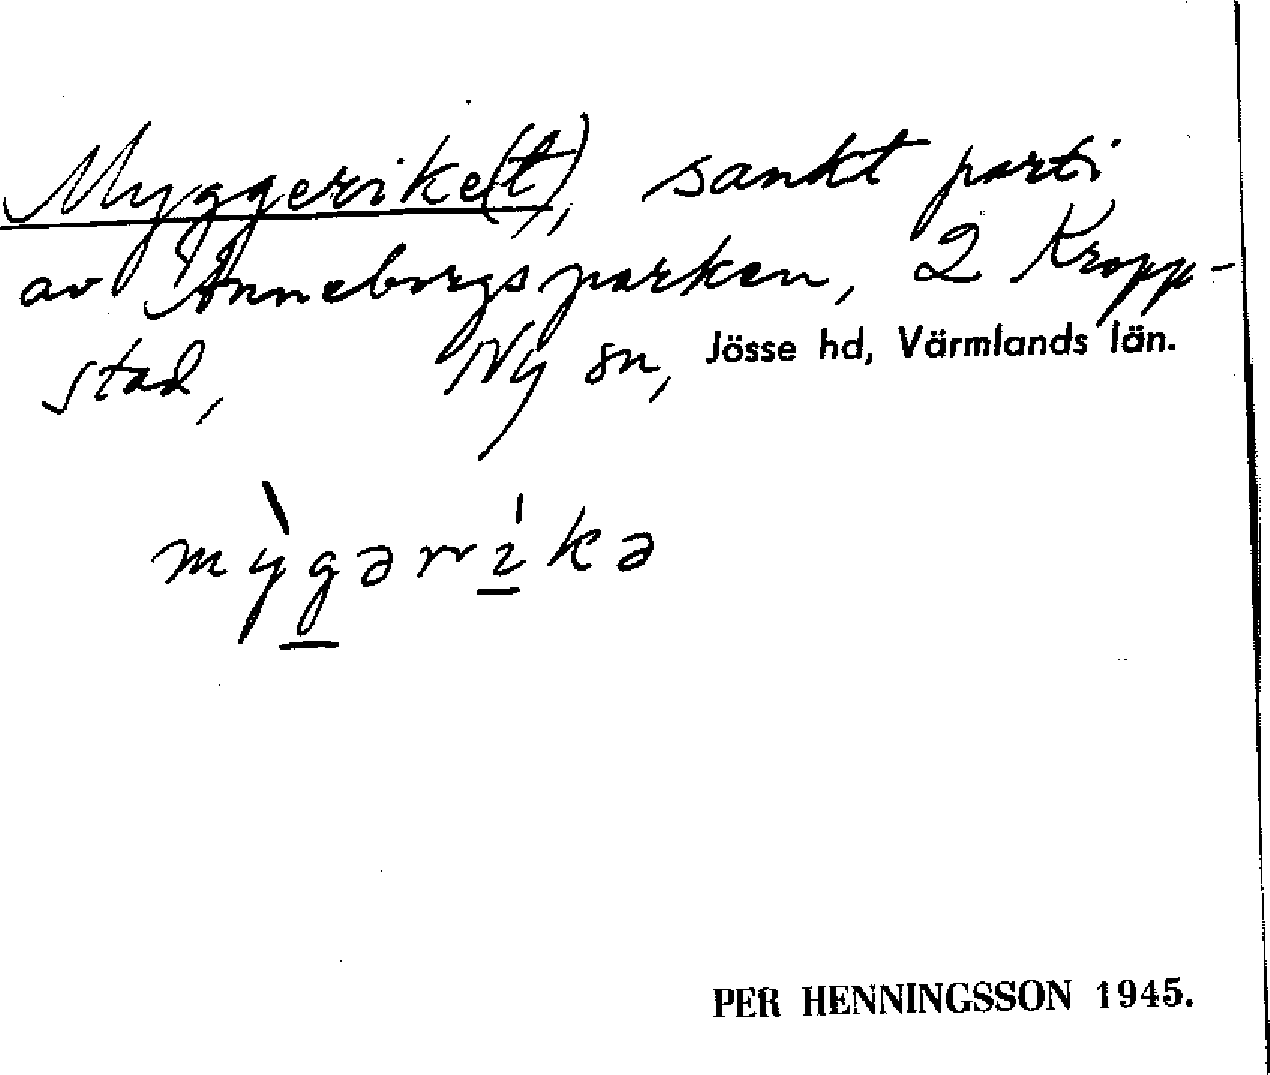 Myggerike(t), sankt parti
av Anneborgsparken, 2 Kropp-
stad, Ny sn, Jösse hd, Värmlands län.
mỳgərríkə
PER HENNINGSSON 1945.